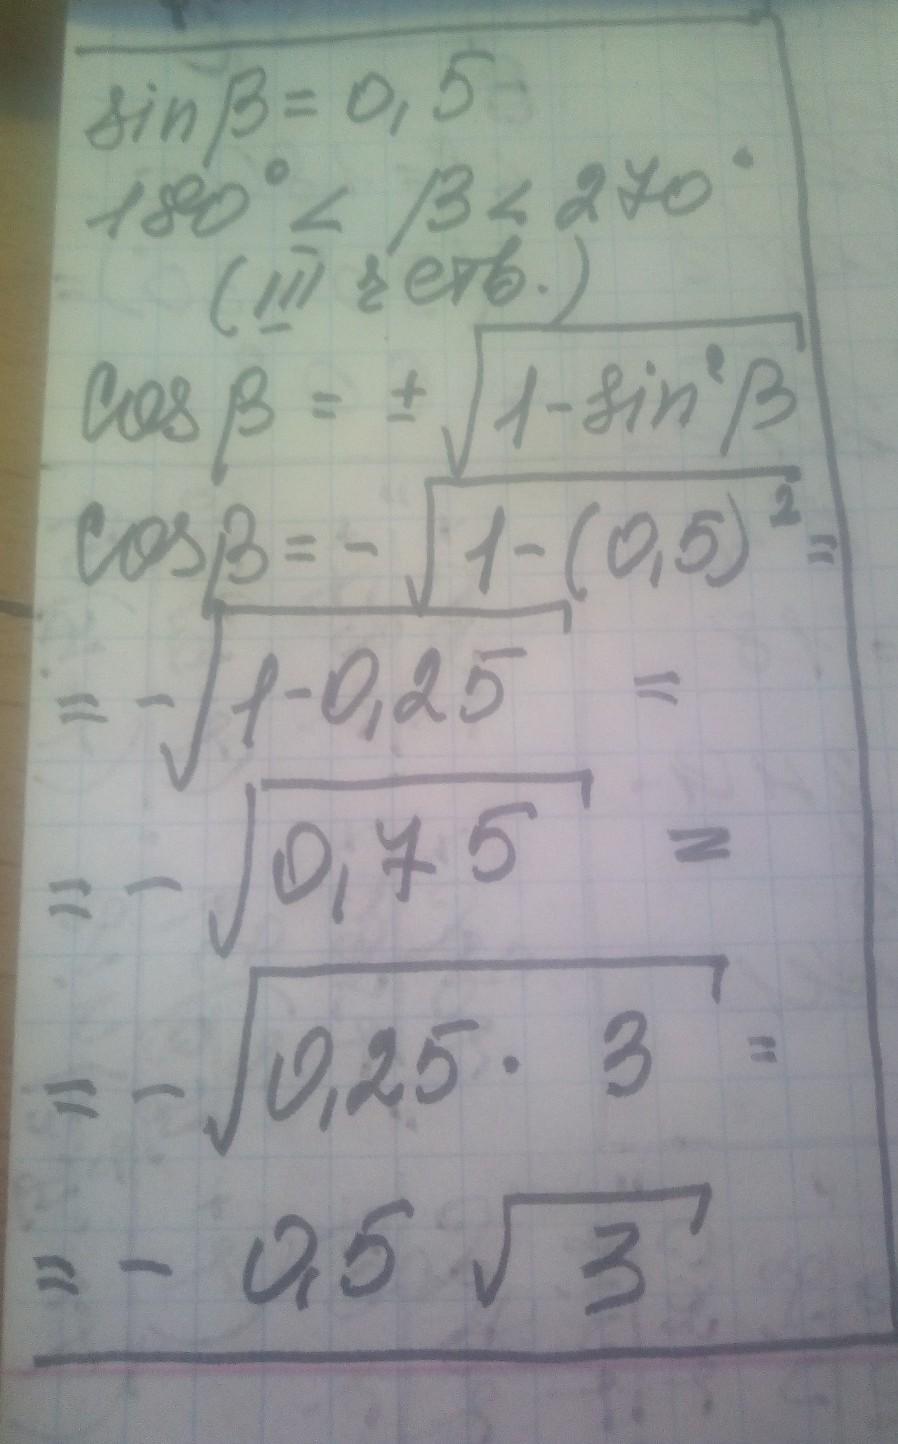 sin β = 0,5
180° < β < 270°
(III четв.)
cos β = ± √1 - sin² β
cos β = - √1 - (0,5)² =
= - √1 - 0,25 =
= - √0,75 =
= - √0,25 · 3 =
= - 0,5 √3